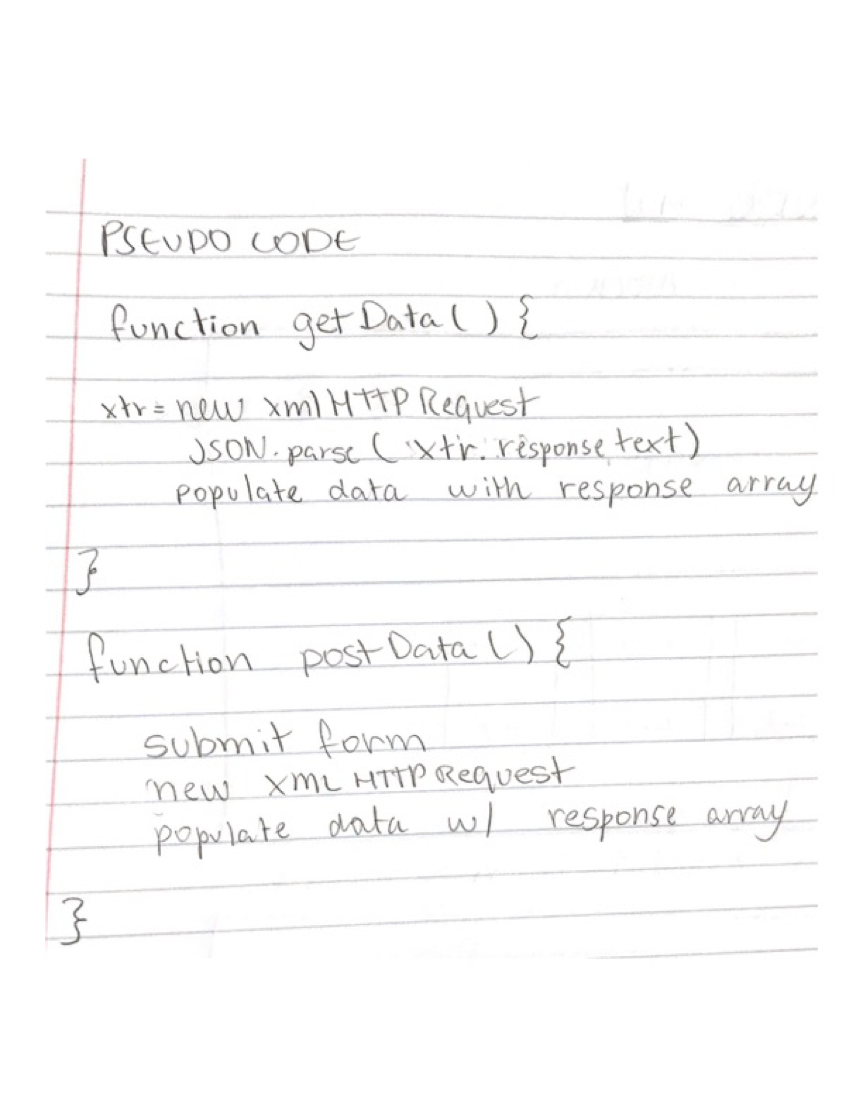 PSEUDO CODE
function getData() {
xtr = new xmlHTTPRequest
JSON.parse( xtr.response text)
populate data with response array
}
function postData() {
submit form
new XML HTTP Request
populate data w/ response array
}